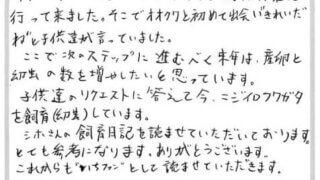 行って来ました。そこでオオクワと初めて出会いきれいだ
ねと子供達が言っていました。
ここで次のステップに進むべく来年は、産卵と
幼虫の数を増やしたいと思っています。
子供達のリクエストに答えて今、ニジイロクワガタ
を飼育(幼虫)しています。
シホさんの飼育日記を読ませていただいております。
とても参考になります。ありがとうございます。
これからも"いちファン"として読ませていただきます。